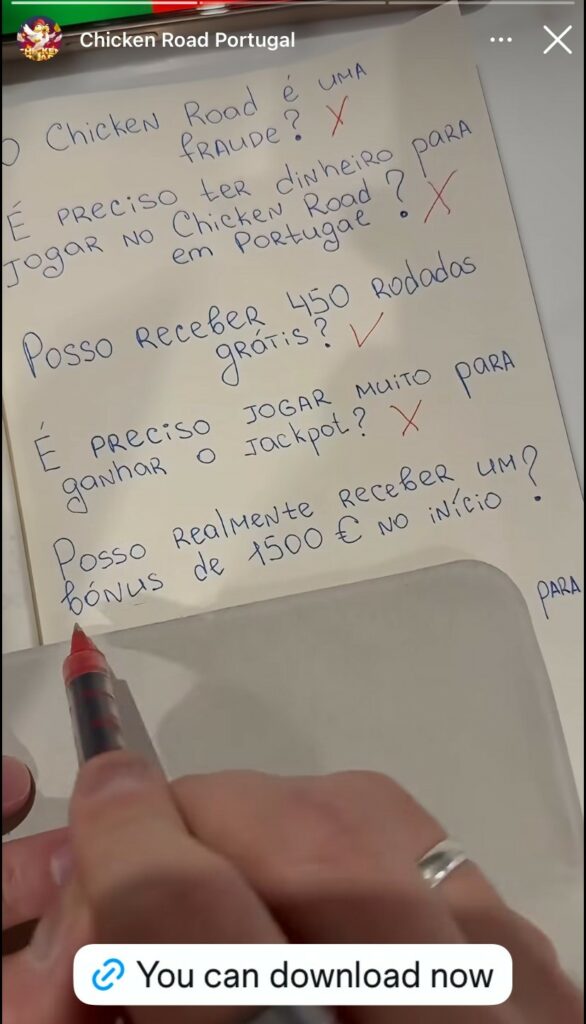 Chicken Road Portugal
O Chicken Road é uma
fraude? X
É preciso ter dinheiro para
jogar no Chicken Road ? X
em Portugal
Posso receber 450 rodadas
grátis? ✓
É preciso jogar muito para
ganhar o jackpot? X
Posso realmente receber um ?
bónus de 1500 € no início
para
You can download now